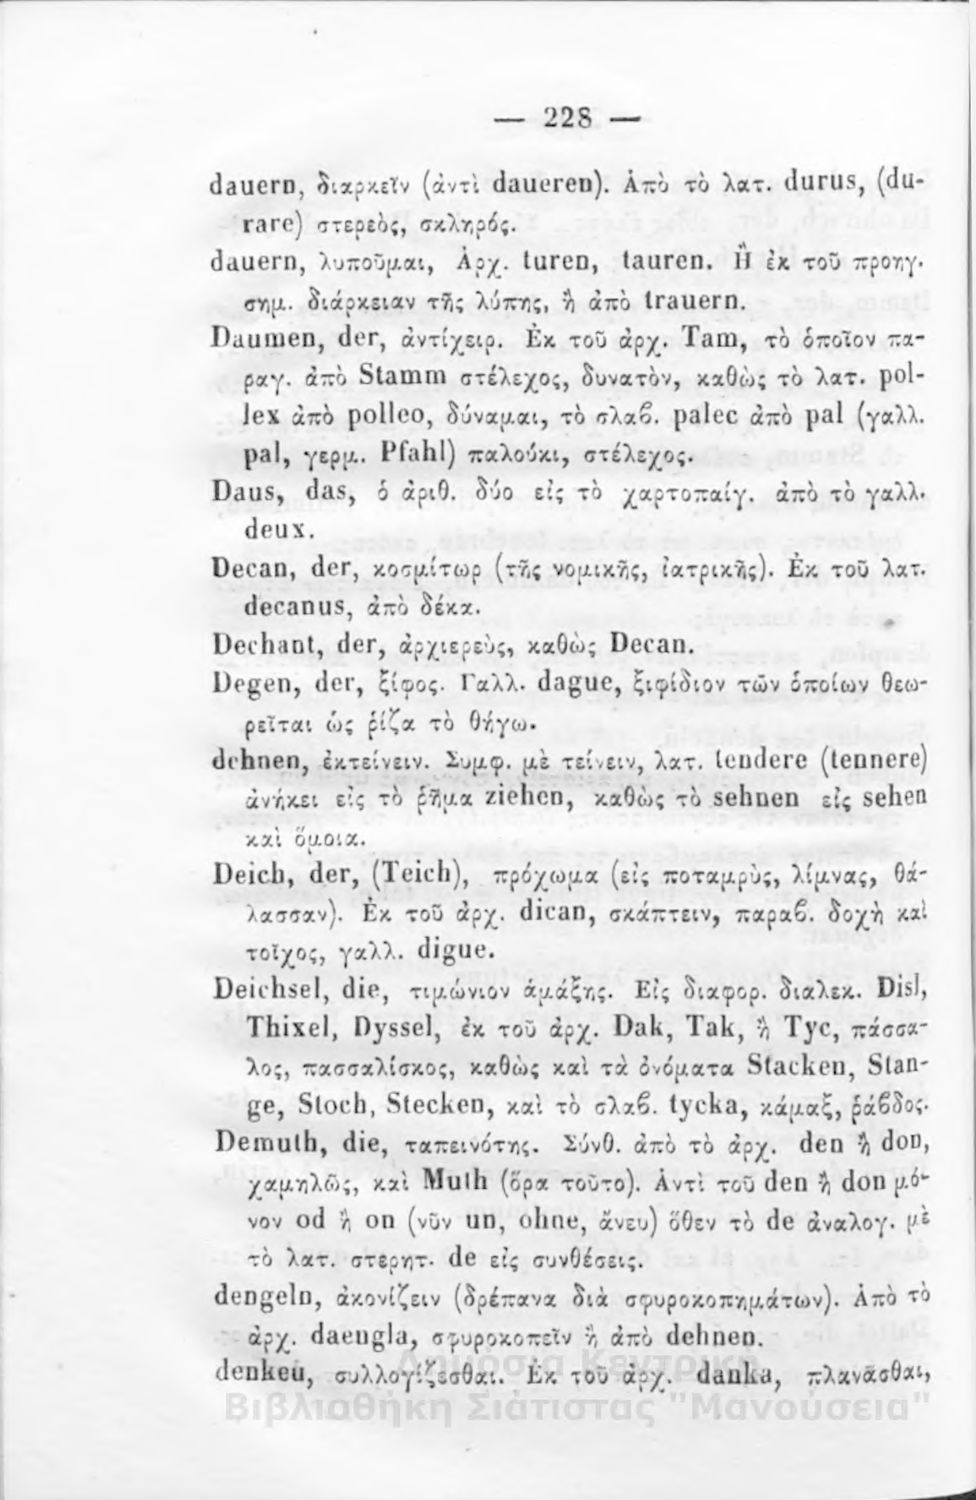 — 228 —
dauern, διαρκεῖν (ἀντὶ daueren). Ἀπὸ τὸ λατ. durus, (du-
rare) στερεὸς, σκληρός.
dauern, λυποῦμαι, Ἀρχ. turen, tauren. Ἢ ἐκ τοῦ προηγ.
σημ. διάρκειαν τῆς λύπης, ἢ ἀπὸ trauern.
Daumen, der, ἀντίχειρ. Ἐκ τοῦ ἀρχ. Tam, τὸ ὁποῖον πα-
ραγ. ἀπὸ Stamm στέλεχος, δυνατὸν, καθὼς τὸ λατ. pol-
lex ἀπὸ polleo, δύναμαι, τὸ σλαβ. palec ἀπὸ pal (γαλλ.
pal, γερμ. Pfahl) παλούκι, στέλεχος.
Daus, das, ὁ ἀριθ. δύο εἰς τὸ χαρτοπαίγ. ἀπὸ τὸ γαλλ.
deux.
Decan, der, κοσμίτωρ (τῆς νομικῆς, ἰατρικῆς). Ἐκ τοῦ λατ.
decanus, ἀπὸ δέκα.
Dechant, der, ἀρχιερεὺς, καθὼς Decan.
Degen, der, ξίφος. Γαλλ. dague, ξιφίδιον τῶν ὁποίων θεω-
ρεῖται ὡς ῥίζα τὸ θήγω.
dehnen, ἐκτείνειν. Συμφ. μὲ τείνειν, λατ. tendere (tennere)
ἀνήκει εἰς τὸ ῥῆμα ziehen, καθὼς τὸ sehnen εἰς sehen
καὶ ὅμοια.
Deich, der, (Teich), πρόχωμα (εἰς ποταμρὺς, λίμνας, θά-
λασσαν). Ἐκ τοῦ ἀρχ. dican, σκάπτειν, παραβ. δοχὴ καὶ
τοῖχος, γαλλ. digue.
Deichsel, die, τιμώνιον ἁμάξης. Εἰς διαφορ. διαλεκ. Disl,
Thixel, Dyssel, ἐκ τοῦ ἀρχ. Dak, Tak, ἢ Tyc, πάσσα-
λος, πασσαλίσκος, καθὼς καὶ τὰ ὀνόματα Stacken, Stan-
ge, Stoch, Stecken, καὶ τὸ σλαβ. tycka, κάμαξ, ῥάβδος.
Demuth, die, ταπεινότης. Σύνθ. ἀπὸ τὸ ἀρχ. den ἢ don,
χαμηλῶς, καὶ Muth (ὅρα τοῦτο). Ἀντὶ τοῦ den ἢ don μό-
νον od ἢ on (νῦν un, ohne, ἄνευ) ὅθεν τὸ de ἀναλογ. μὲ
τὸ λατ. στερητ. de εἰς συνθέσεις.
dengeln, ἀκονίζειν (δρέπανα διὰ σφυροκοπημάτων). Ἀπὸ τὸ
ἀρχ. daengla, σφυροκοπεῖν ἢ ἀπὸ dehnen.
denken, συλλογίζεσθαι. Ἐκ τοῦ ἀρχ. danka, πλανᾶσθαι,
Δημόσια Κεντρική
Βιβλιοθήκη Σιάτιστας "Μανούσεια"